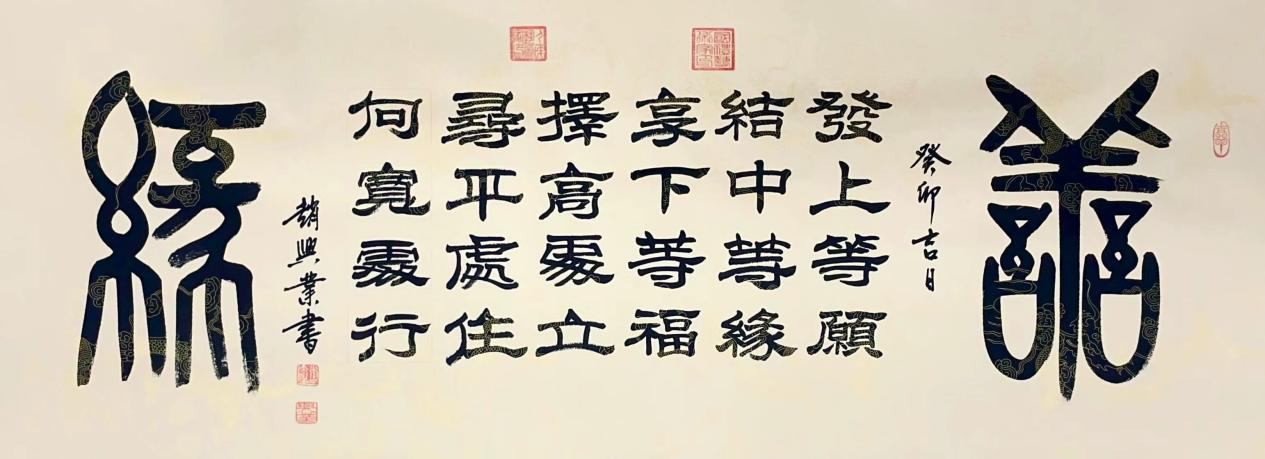 善
癸卯吉日
發上等願
結中等緣
享下等福
擇高處立
尋平處住
向寬處行
趙興業書
緣